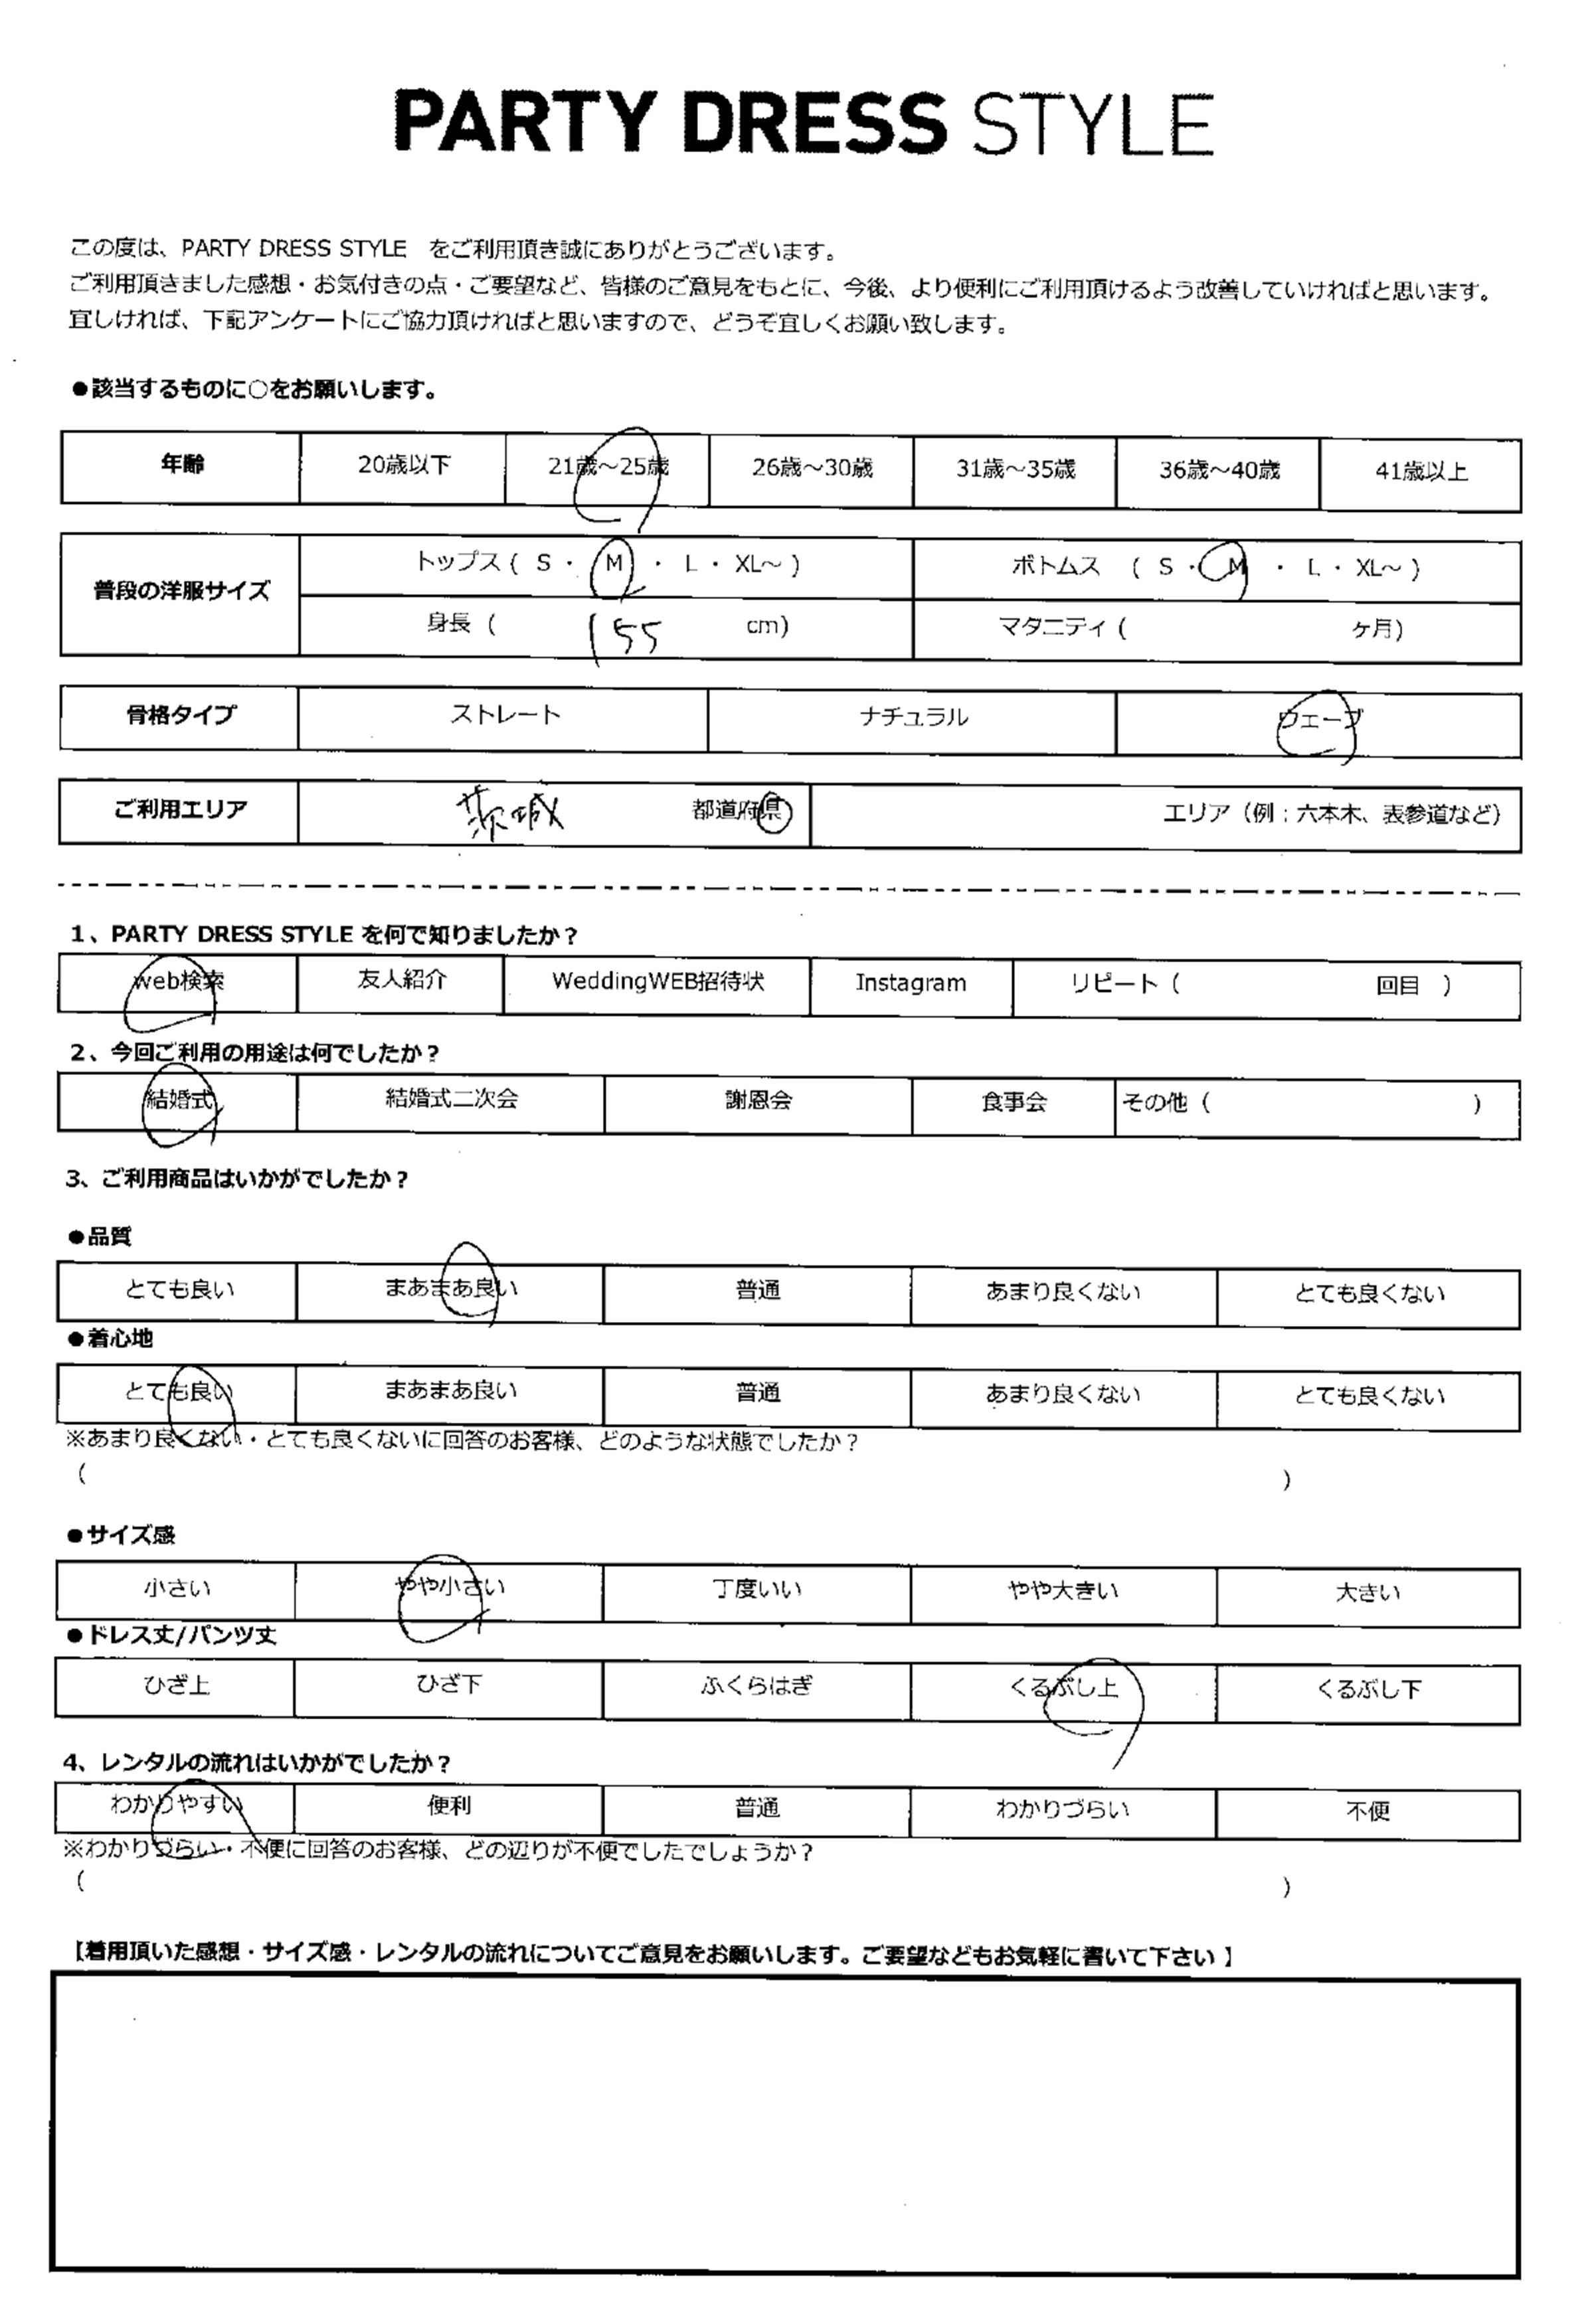 PARTY DRESS STYLE
この度は、PARTY DRESS STYLE　をご利用頂き誠にありがとうございます。
ご利用頂きました感想・お気付きの点・ご要望など、皆様のご意見をもとに、今後、より便利にご利用頂けるよう改善していければと思います。
宜しければ、下記アンケートにご協力頂ければと思いますので、どうぞ宜しくお願い致します。
●該当するものに○をお願いします。
年齢 20歳以下 21歳～25歳 26歳～30歳 31歳～35歳 36歳～40歳 41歳以上
普段の洋服サイズ トップス ( S ・ M ・ L ・ XL～ ) ボトムス ( S ・ M ・ L ・ XL～ )
身長 ( 155 cm) マタニティ ( ヶ月)
骨格タイプ ストレート ナチュラル ウェーブ
ご利用エリア 茨城 都道府県 エリア（例：六本木、表参道など）
1、PARTY DRESS STYLE を何で知りましたか？
web検索 友人紹介 WeddingWEB招待状 Instagram リピート ( 回目 )
2、今回ご利用の用途は何でしたか？
結婚式 結婚式二次会 謝恩会 食事会 その他 ( )
3、ご利用商品はいかがでしたか？
●品質
とても良い まあまあ良い 普通 あまり良くない とても良くない
●着心地
とても良い まあまあ良い 普通 あまり良くない とても良くない
※あまり良くない・とても良くないに回答のお客様、どのような状態でしたか？
( )
●サイズ感
小さい やや小さい 丁度いい やや大きい 大きい
●ドレス丈/パンツ丈
ひざ上 ひざ下 ふくらはぎ くるぶし上 くるぶし下
4、レンタルの流れはいかがでしたか？
わかりやすい 便利 普通 わかりづらい 不便
※わかりづらい・不便に回答のお客様、どの辺りが不便でしたでしょうか？
( )
【着用頂いた感想・サイズ感・レンタルの流れについてご意見をお願いします。ご要望などもお気軽に書いて下さい】